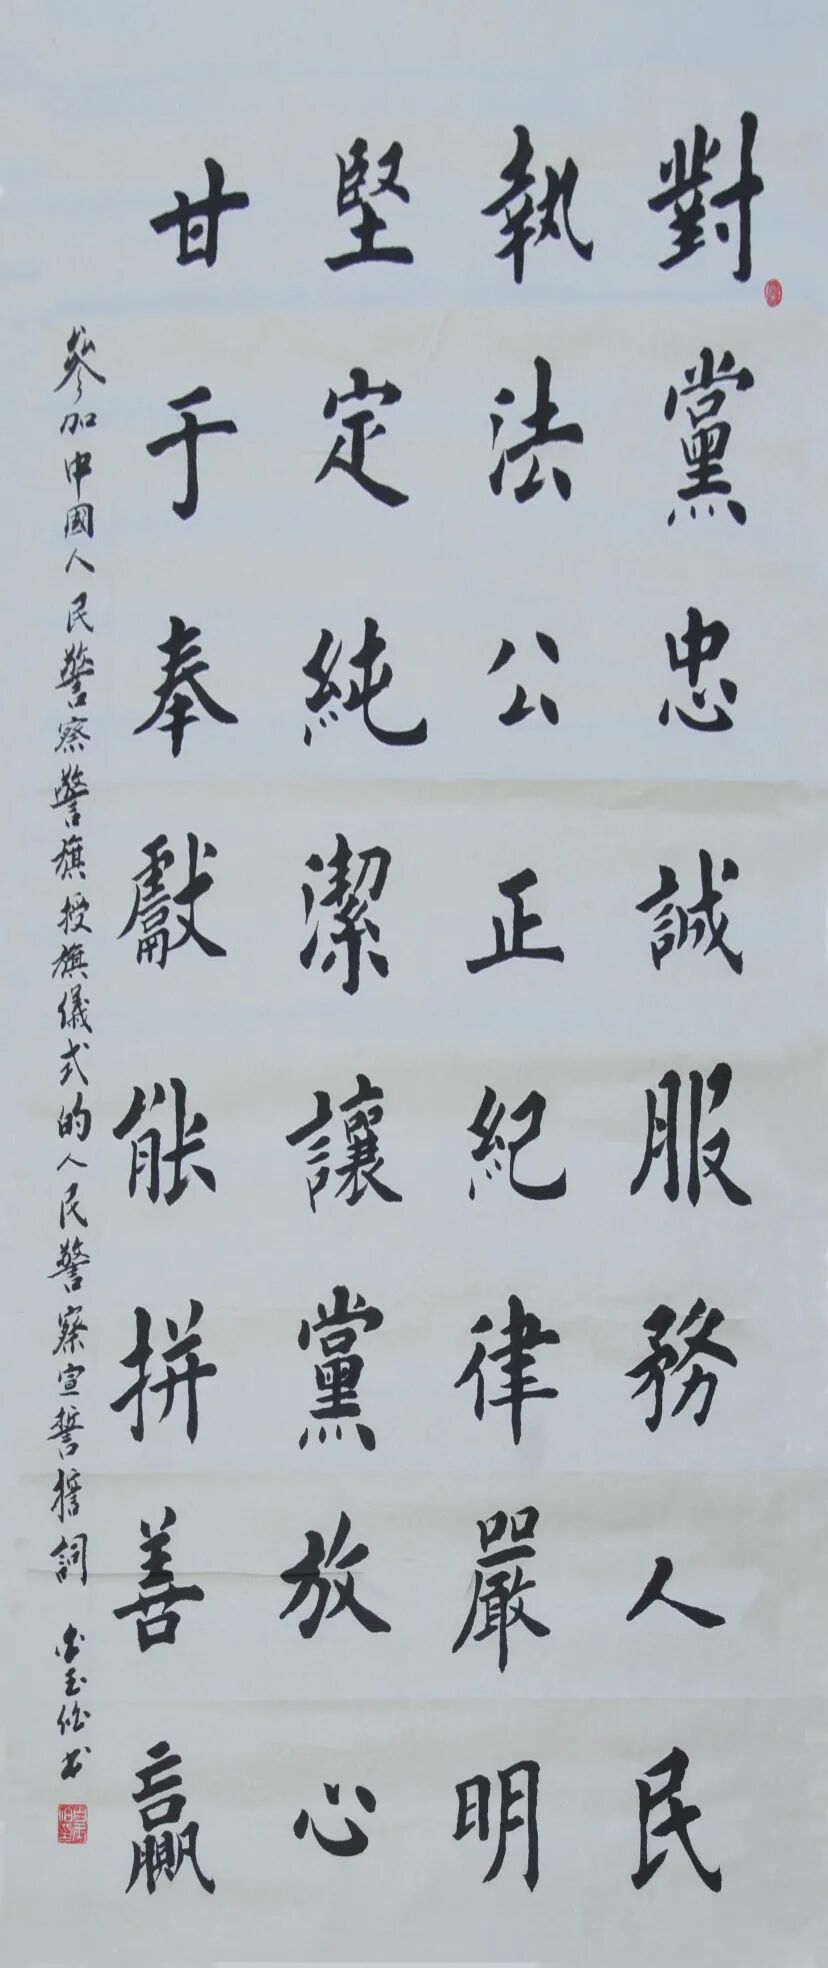 對黨忠誠服務人民
執法公正紀律嚴明
堅定純潔讓黨放心
甘于奉獻能拼善贏
參加中國人民警察警旗授旗儀式的人民警察宣誓誓詞
玉 書